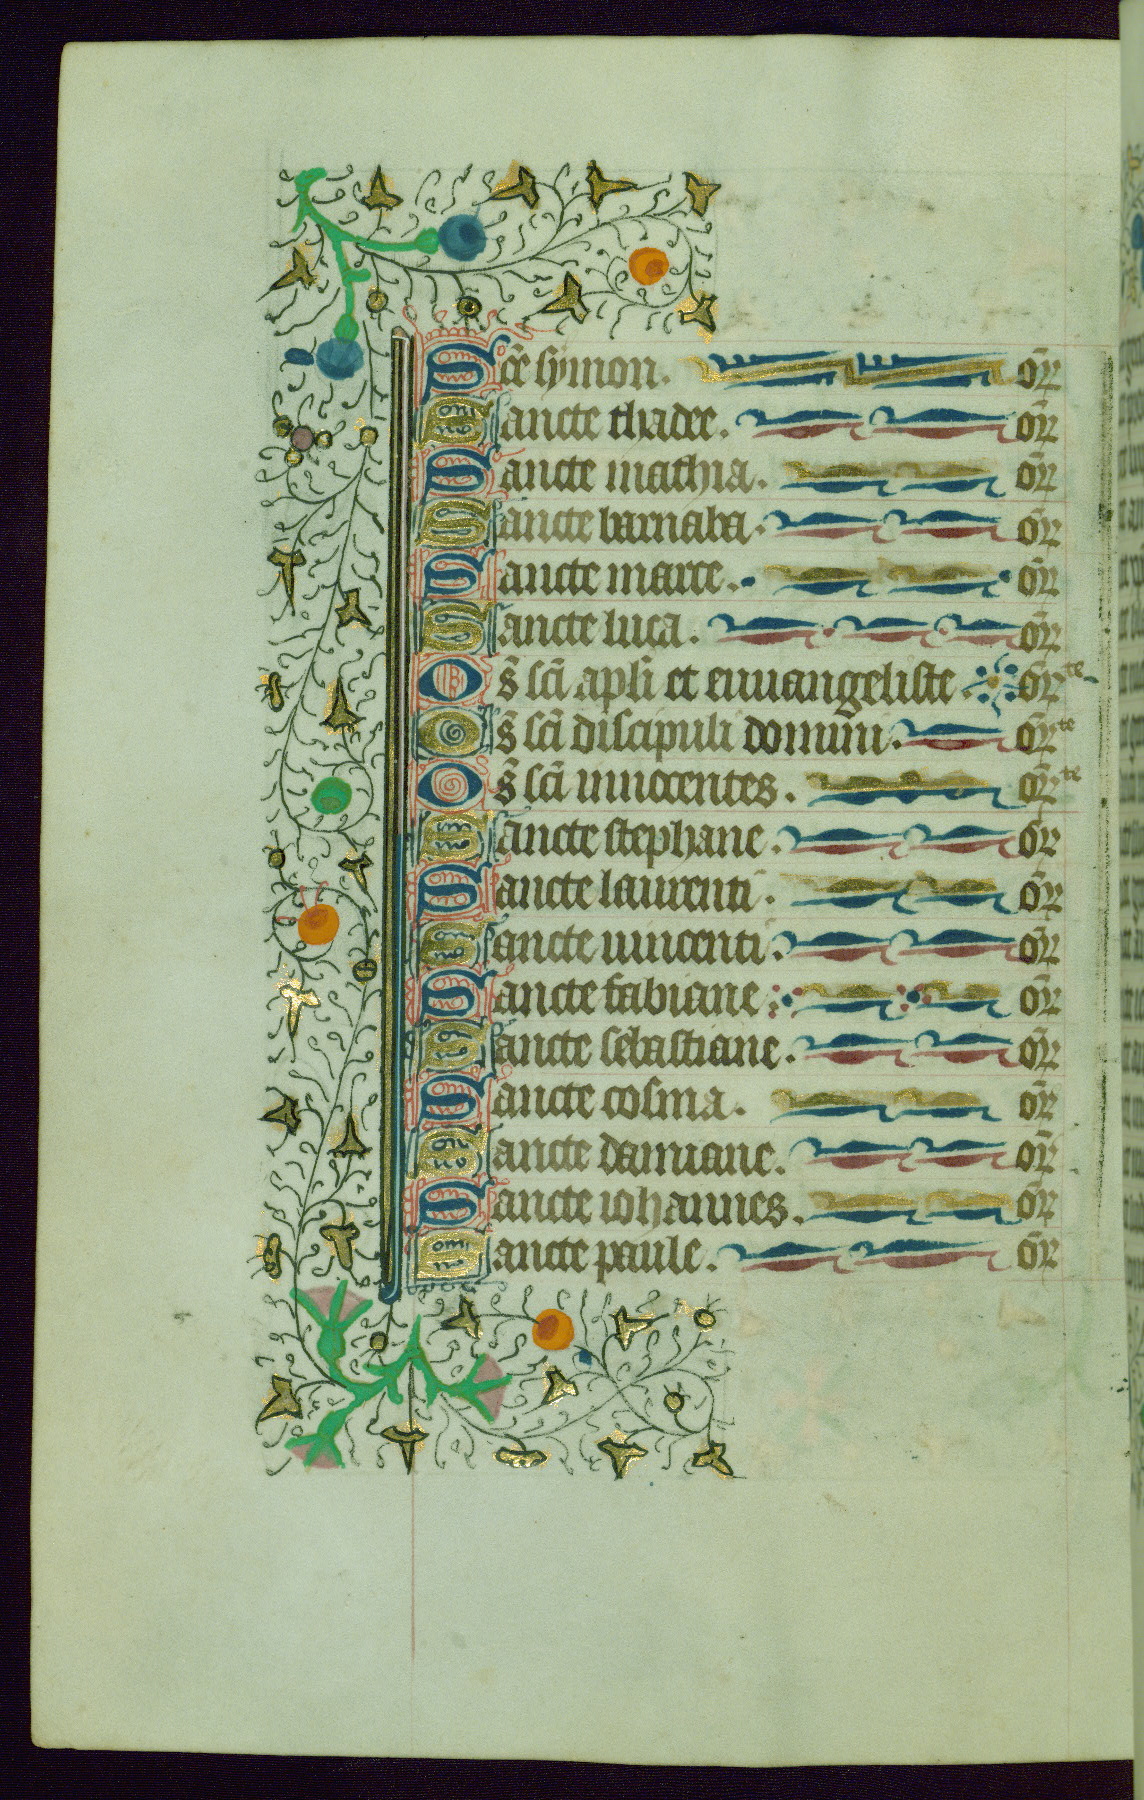 Sc̄e symon. or̄
Sancte thadee. or̄
Sancte mathia. or̄
Sancte barnaba. or̄
Sancte marce. or̄
Sancte luca. or̄
Om̄s sc̄i apl̄i et euuangeliste or̄te
Om̄s sc̄i discipuli domini. or̄te
Om̄s sc̄i innocentes. or̄te
Sancte stephane. or̄
Sancte laurenti. or̄
Sancte uincenti. or̄
Sancte fabiane or̄
Sancte sebastiane. or̄
Sancte cosma. or̄
Sancte damiane. or̄
Sancte iohannes. or̄
Sancte paule. or̄